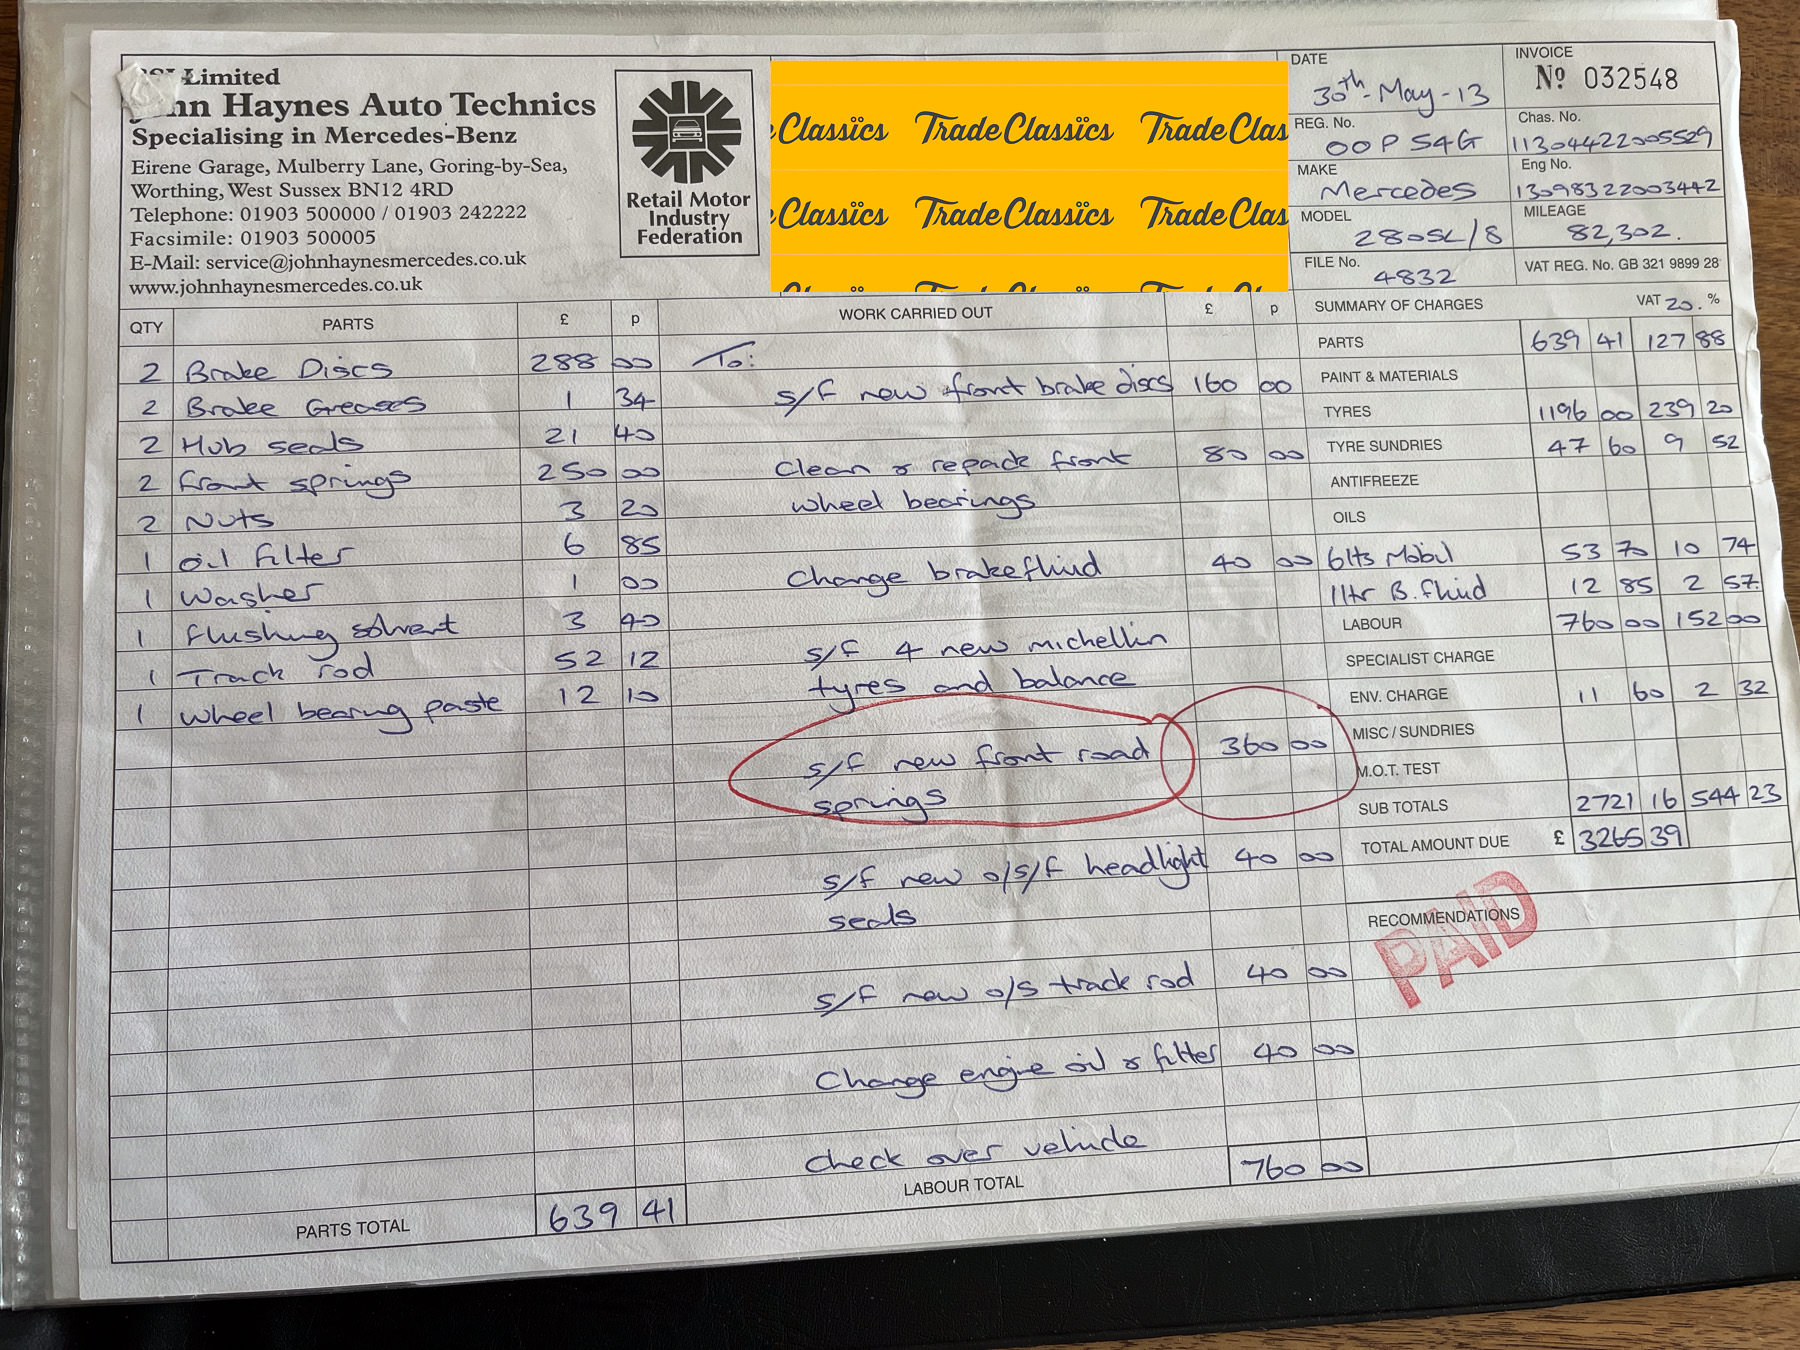 Limited
hn Haynes Auto Technics
Specialising in Mercedes-Benz
Eirene Garage, Mulberry Lane, Goring-by-Sea,
Worthing, West Sussex BN12 4RD
Telephone: 01903 500000 / 01903 242222
Facsimile: 01903 500005
E-Mail: service@johnhaynesmercedes.co.uk
www.johnhaynesmercedes.co.uk
Retail Motor
Industry
Federation
Classics TradeClassics TradeClas
Classics TradeClassics TradeClas
DATE
30th-May-13
INVOICE
Nº 032548
REG. No.
OOP 54G
Chas. No.
11304422005529
MAKE
Mercedes
Eng No.
13098322003442
MODEL
280SL/8
MILEAGE
82,302.
FILE No.
4832
VAT REG. No. GB 321 9899 28
QTY PARTS £ p
2 Brake Discs 288 00
2 Brake Greases 1 34
2 Hub seals 21 40
2 front springs 250 00
2 Nuts 3 20
1 oil filter 6 85
1 washer 1 00
1 flushing solvent 3 40
1 Track rod 52 12
1 wheel bearing paste 12 10
PARTS TOTAL 639 41
WORK CARRIED OUT £ p
To:
s/f new front brake discs 160 00
Clean & repack front 80 00
wheel bearings
Change brakefluid 40 00
s/f 4 new michellin
tyres and balance
s/f new front road 360 00
springs
s/f new o/s/f headlight 40 00
seals
s/f new o/s track rod 40 00
Change engine oil & filter 40 00
Check over vehicle
LABOUR TOTAL 760 00
SUMMARY OF CHARGES VAT 20. %
PARTS 639 41 127 88
PAINT & MATERIALS
TYRES 1196 00 239 20
TYRE SUNDRIES 47 60 9 52
ANTIFREEZE
OILS
6lts Mobil 53 70 10 74
1ltr B.fluid 12 85 2 57.
LABOUR 760 00 152 00
SPECIALIST CHARGE
ENV. CHARGE 11 60 2 32
MISC / SUNDRIES
M.O.T. TEST
SUB TOTALS 2721 16 544 23
TOTAL AMOUNT DUE £ 3265 39
RECOMMENDATIONS
PAID